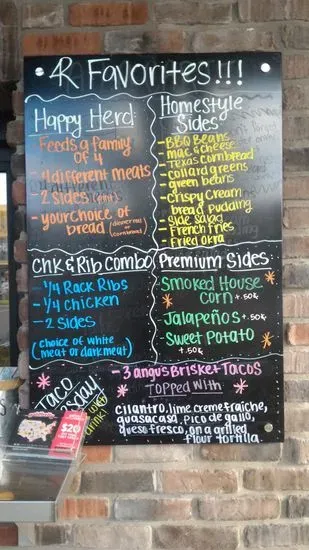 4R Favorites!!!
Happy Herd:
Feeds a family
of 4
- 4 different meats
- 2 sides (pint)
- your choice of
bread (dinner roll or
cornbread)
Homestyle
Sides
- BBQ Beans
- mac & cheese
- Texas cornbread
- collard greens
- green beans
- crispy cream
bread pudding
- side salad
- French fries
- Fried okra
Chk & Rib Combo
- 1/4 Rack Ribs
- 1/4 chicken
- 2 sides
(choice of white
meat or dark meat)
Premium Sides
Smoked House
corn +.50¢
Jalapeños +.50¢
Sweet Potato
+.50¢
Taco
- 3 angus Brisket Tacos
Topped with
cilantro, lime creme fraiche,
guasacasa, pico de gallo,
queso fresco, on a grilled
flour tortilla.
drink!
$20